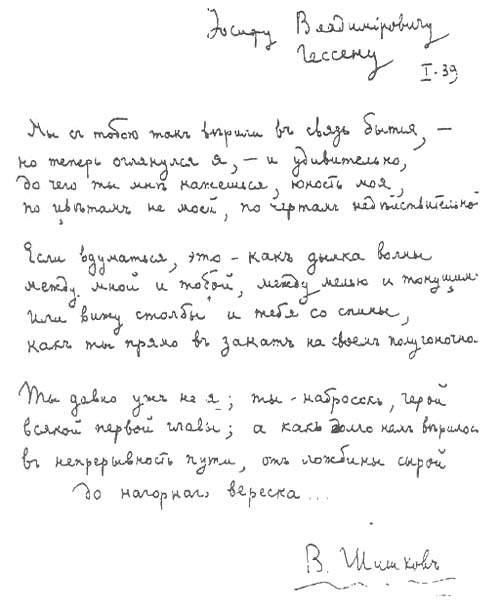 Іосифу Владиміровичу
Гессену
I·39
Мы съ тобою такъ вѣрили въ связь бытія, —
но теперь оглянулся я, — и удивительно,
до чего ты мнѣ кажешься, юность моя,
по цвѣтамъ не моей, по чертамъ недѣйствительной
Если вдуматься, это — какъ дымка волны
между мной и тобой, между мелью и тонущимъ
Или вижу столбы и тебя со спины,
какъ ты прямо въ закатъ на своемъ полугоночно
Ты давно ужъ не я; ты — набросокъ, герой
всякой первой главы; а какъ долго намъ вѣрилось
въ непрерывность пути, отъ ложбины сырой
до нагорнаго вереска...
В. Шишковъ